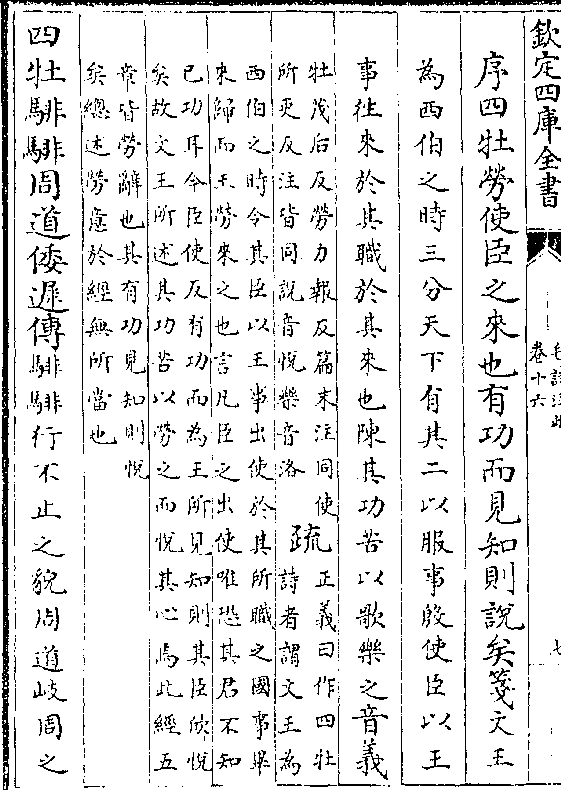 欽定四庫全書
毛詩注疏
卷十六
七
序四牡勞使臣之來也有功而見知則說矣箋文王
為西伯之時三分天下有其二以服事殷使臣以王
事徃來於其職於其來也陳其功苦以歌樂之音義
牡茂后反勞力報反篇末注同使
所吏反注皆同說音悅樂音洛
疏
正義曰作四牡
詩者謂文王為
西伯之時令其臣以王事出使於其所職之國事畢
來歸而王勞來之也言凡臣之出使唯恐其君不知
已功耳今臣使反有功而為王所見知則其臣欣悅
矣故文王所述其功苦以勞之而悅其心焉此經五
章皆勞辭也其有功見知則悅
矣總述勞意於經無所當也
四牡騑騑周道倭遲傳騑騑行不止之貌周道岐周之